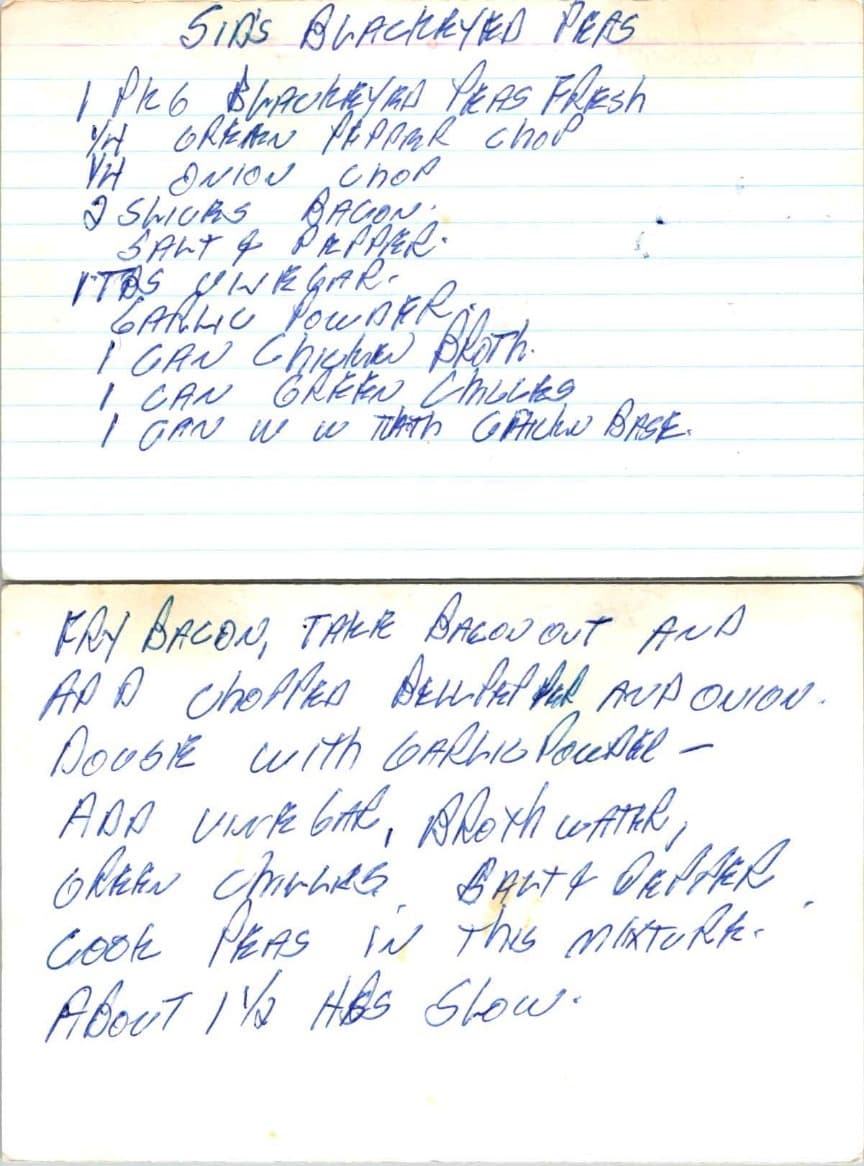 SID'S BLACKEYED PEAS
1 PKG BLACKEYED PEAS FRESH
1/4 GREEN PEPPER CHOP
1/4 ONION CHOP
2 SLICES BACON.
SALT & PEPPER.
1 TBS VINEGAR.
GARLIC POWDER.
1 CAN CHICKEN BROTH.
1 CAN GREEN CHILLIES
1 CAN W BASE.
FRY BACON, TAKE BACON OUT AND
ADD CHOPPED BELLPEPPER AND ONION.
DOUSE WITH GARLIC POWDER —
ADD VINEGAR, BROTH WATER,
GREEN CHILLIES, SALT & PEPPER.
COOK PEAS IN THIS MIXTURE.
ABOUT 1 1/2 HRS SLOW.